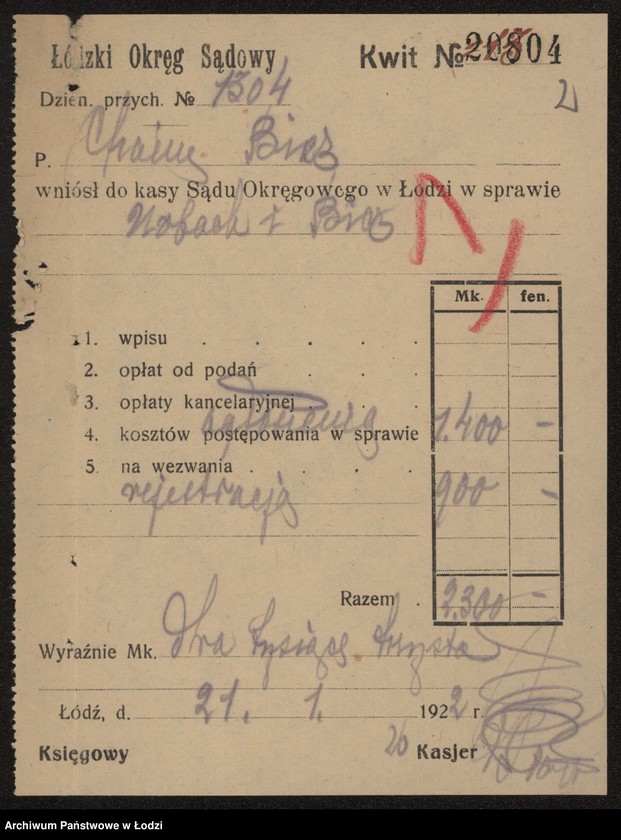 Łódzki Okręg Sądowy Kwit № 20804
Dzien. przych. № 1304
2
P. Chaim
wniósł do kasy Sądu Okręgowego w Łodzi w sprawie
i
Mk. fen.
1. wpisu . . . . .
2. opłat od podań . . .
3. opłaty kancelaryjnej . . .
ogłoszenia
4. kosztów postępowania w sprawie 1.400 —
5 na wezwania . . . .
rejestracją 900 —
Razem . 2.300 —
Wyraźnie Mk. dwa tysiące trzysta
Łódź, d. 21. 1. 1922 r.
Księgowy 26 Kasjer
Archiwum Państwowe w Łodzi